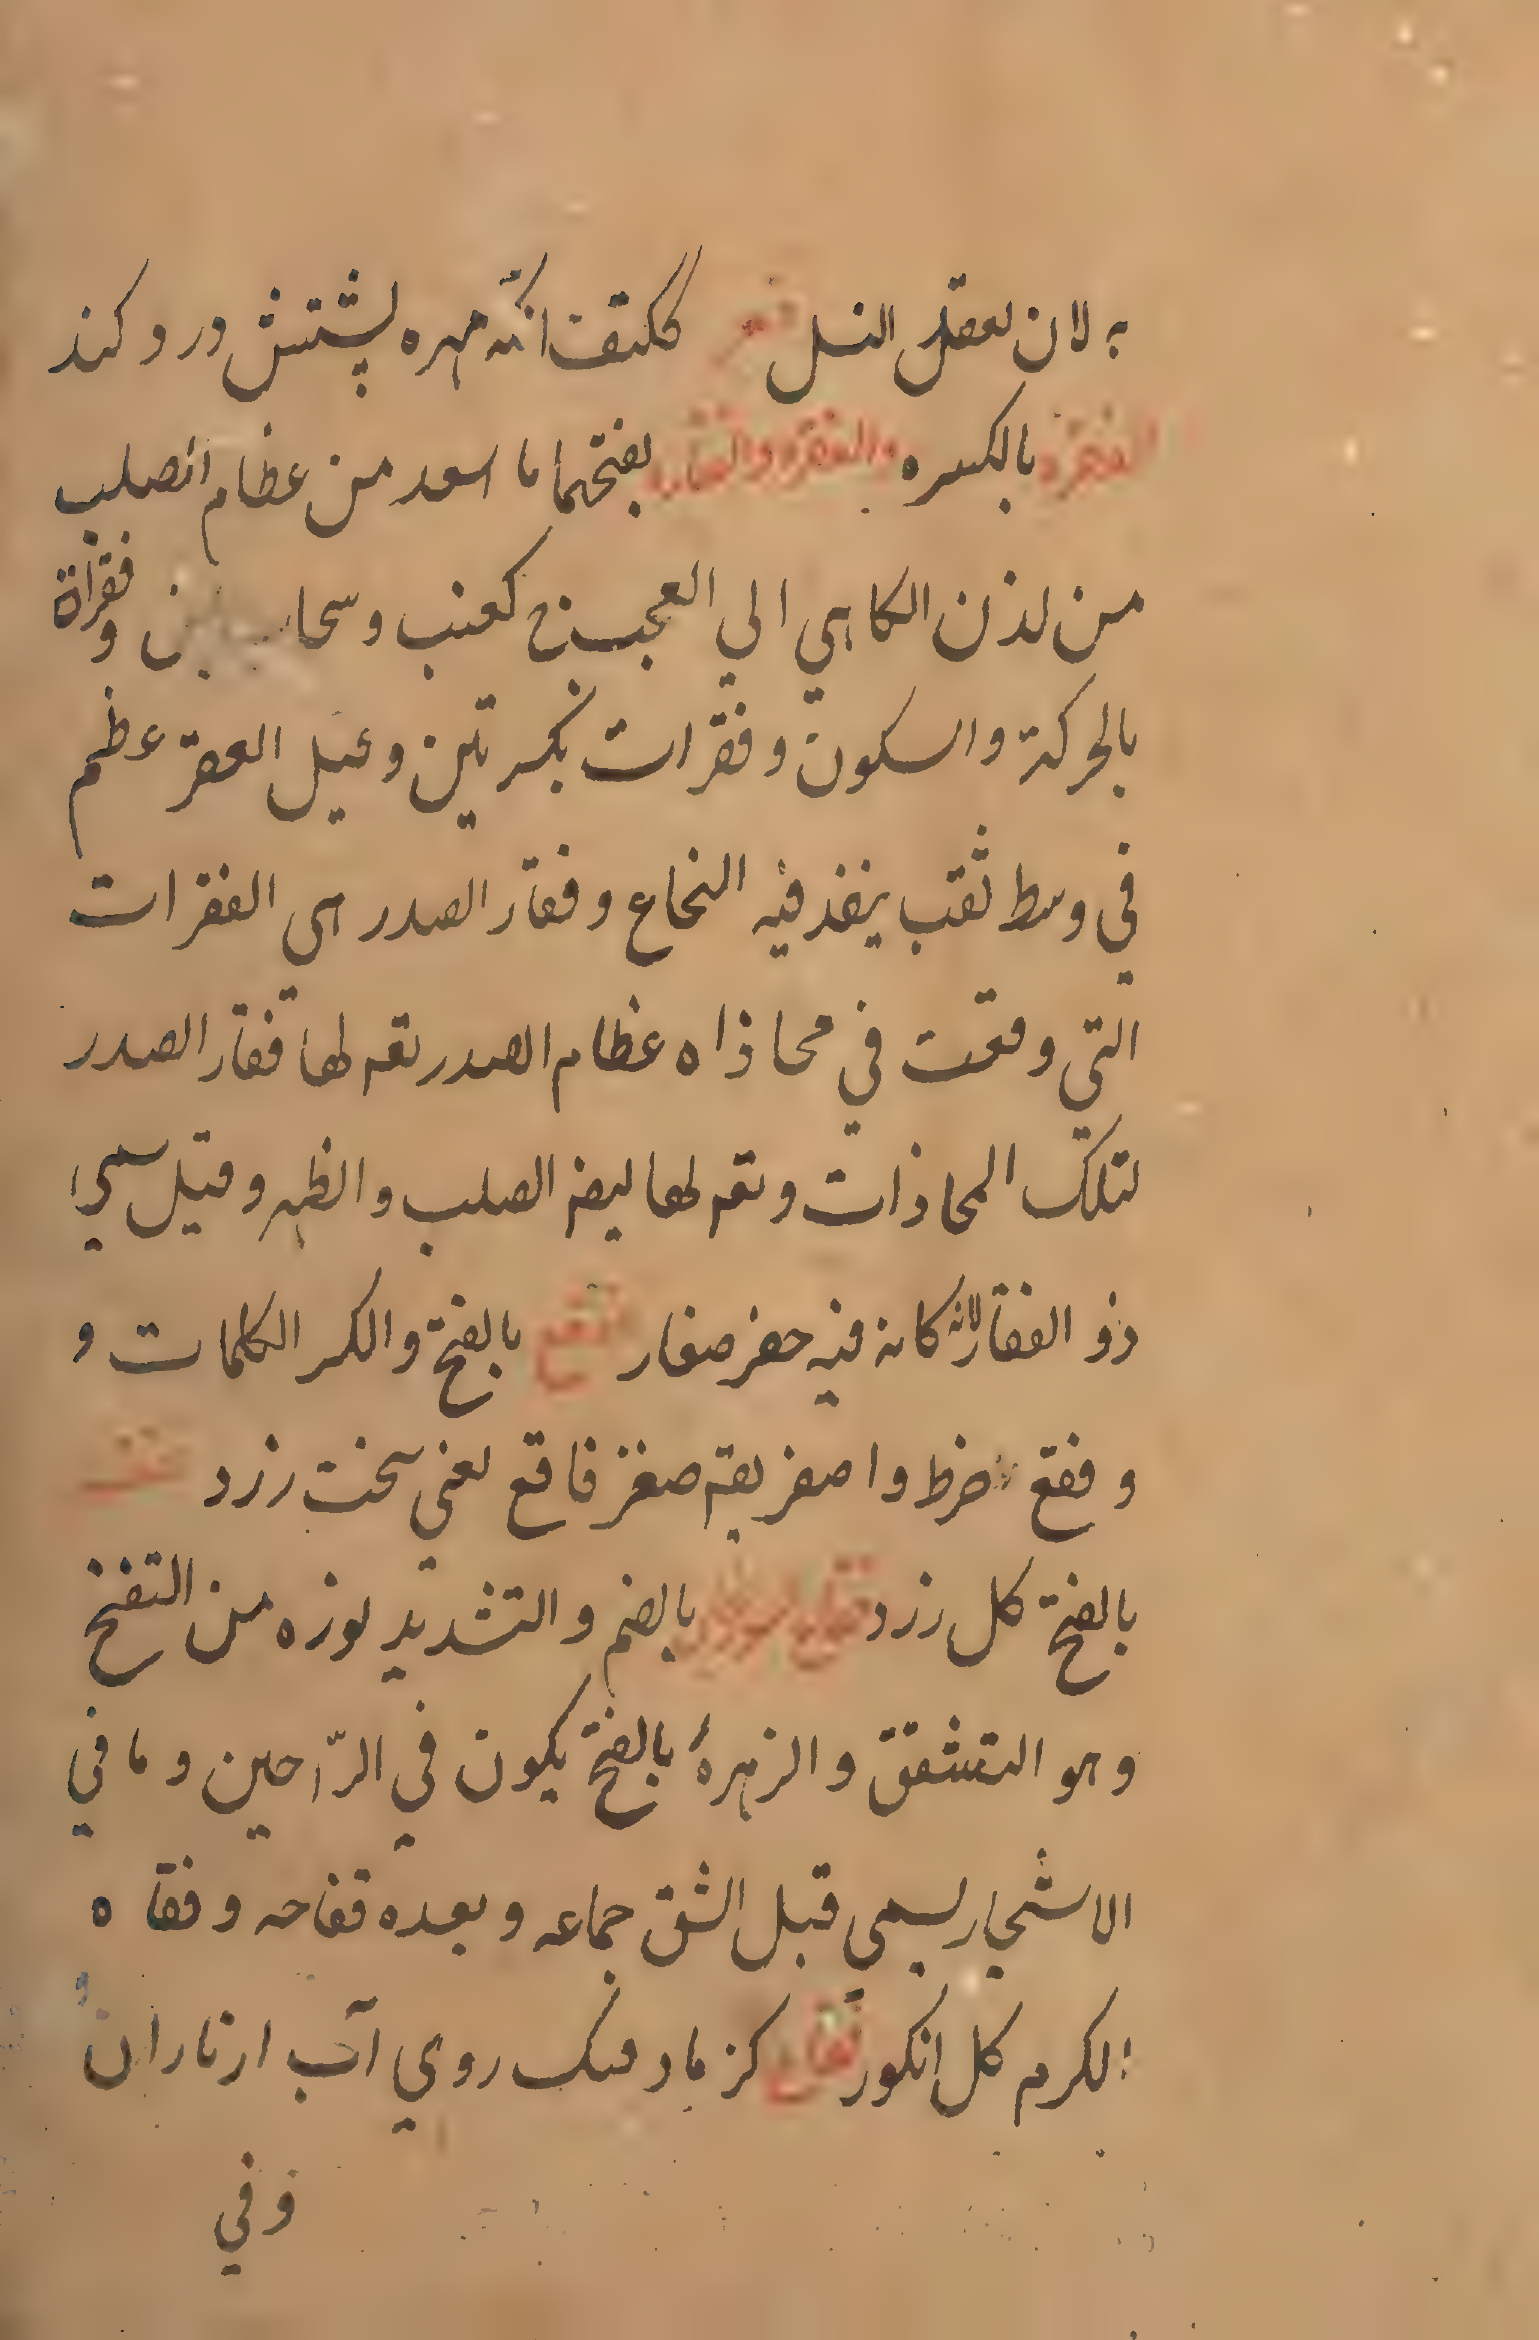 به لان لعقل النسل فقر ککتف انکه مهره پشتش درد کند
الفقره بالکسره والفقره والفقاره بفتحهما ما اسعد من عظام الصلب
من لذن الکاهي الي العجب ج کعنب و سحاب و فقراة
بالحرکة والسکون و فقرات بکسرتین و قیل الفقر عظم
في وسط ثقب ینفذ فیه النخاع و فقار الصدر هی الفقرات
التي وقعت في محاذاه عظام الصدر یقم لها فقار الصدر
لتلک المحاذات و یقم لها لیضم الصلب والظهر و قیل سمي
ذو الفقار لانه کانه فیه حفر صغار فقع بالفتح والکسر الکلمات و
و فقع ضرط و اصفر یقم صفر فاقع یعني سخت زرد
بالفتح کل زرد بالضم والتشدید نوزه من التفتح
و هو التشقق والزهرهٔ بالفتح یکون في الرّاحین و ما في
الاشجار یسمي قبل الشق جماعه و بعده فقاحه و فقاه
الکرم کل انکور فقاع کز مادمنک روي آب ار ناران
و في